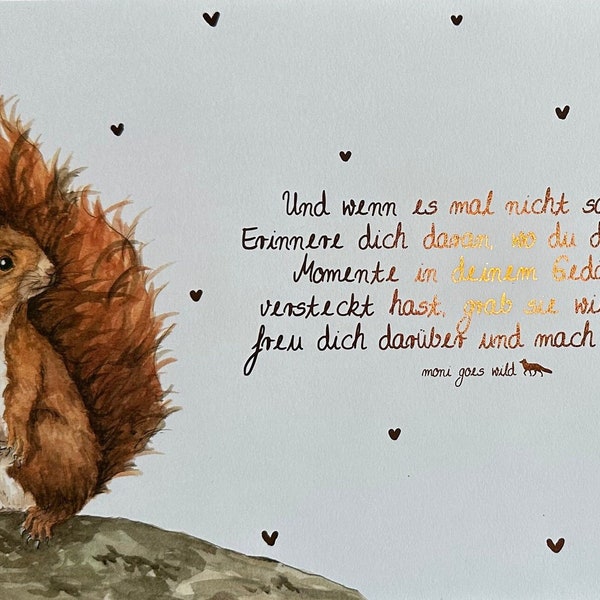 Und wenn es mal nicht
Erinnere dich daran, wo du
Momente in deinem
versteckt hast, grab sie
freu dich darüber und mach
moni goes wild